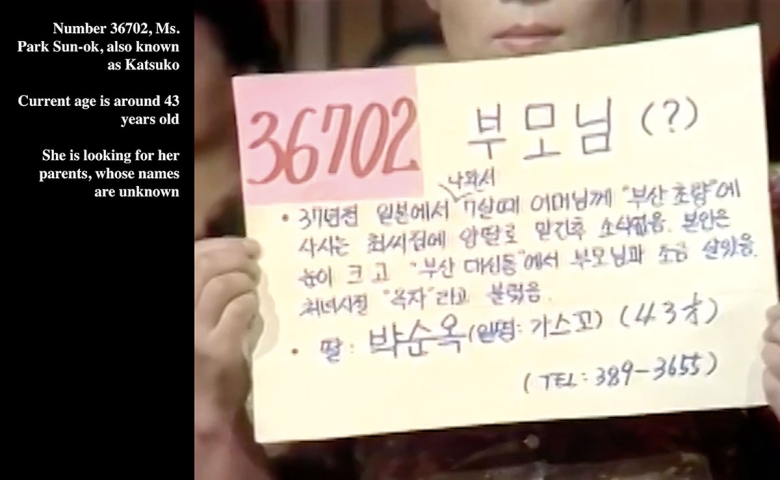 Number 36702, Ms.
Park Sun-ok, also known
as Katsuko
Current age is around 43
years old
She is looking for her
parents, whose names
are unknown
36702
부모님 (?)
나와서
• 37년전 일본에서 7살때 어머님께 "부산 초량"에
사시는 최씨집에 양딸로 맡긴후 소식없음. 본인은
눈이 크고 "부산 대신동"에서 부모님과 조금 살았음.
처녀시절 "옥자"라고 불렸음.
• 딸: 박순옥 (일명: 가스꼬) (43才)
(TEL: 389-3655)